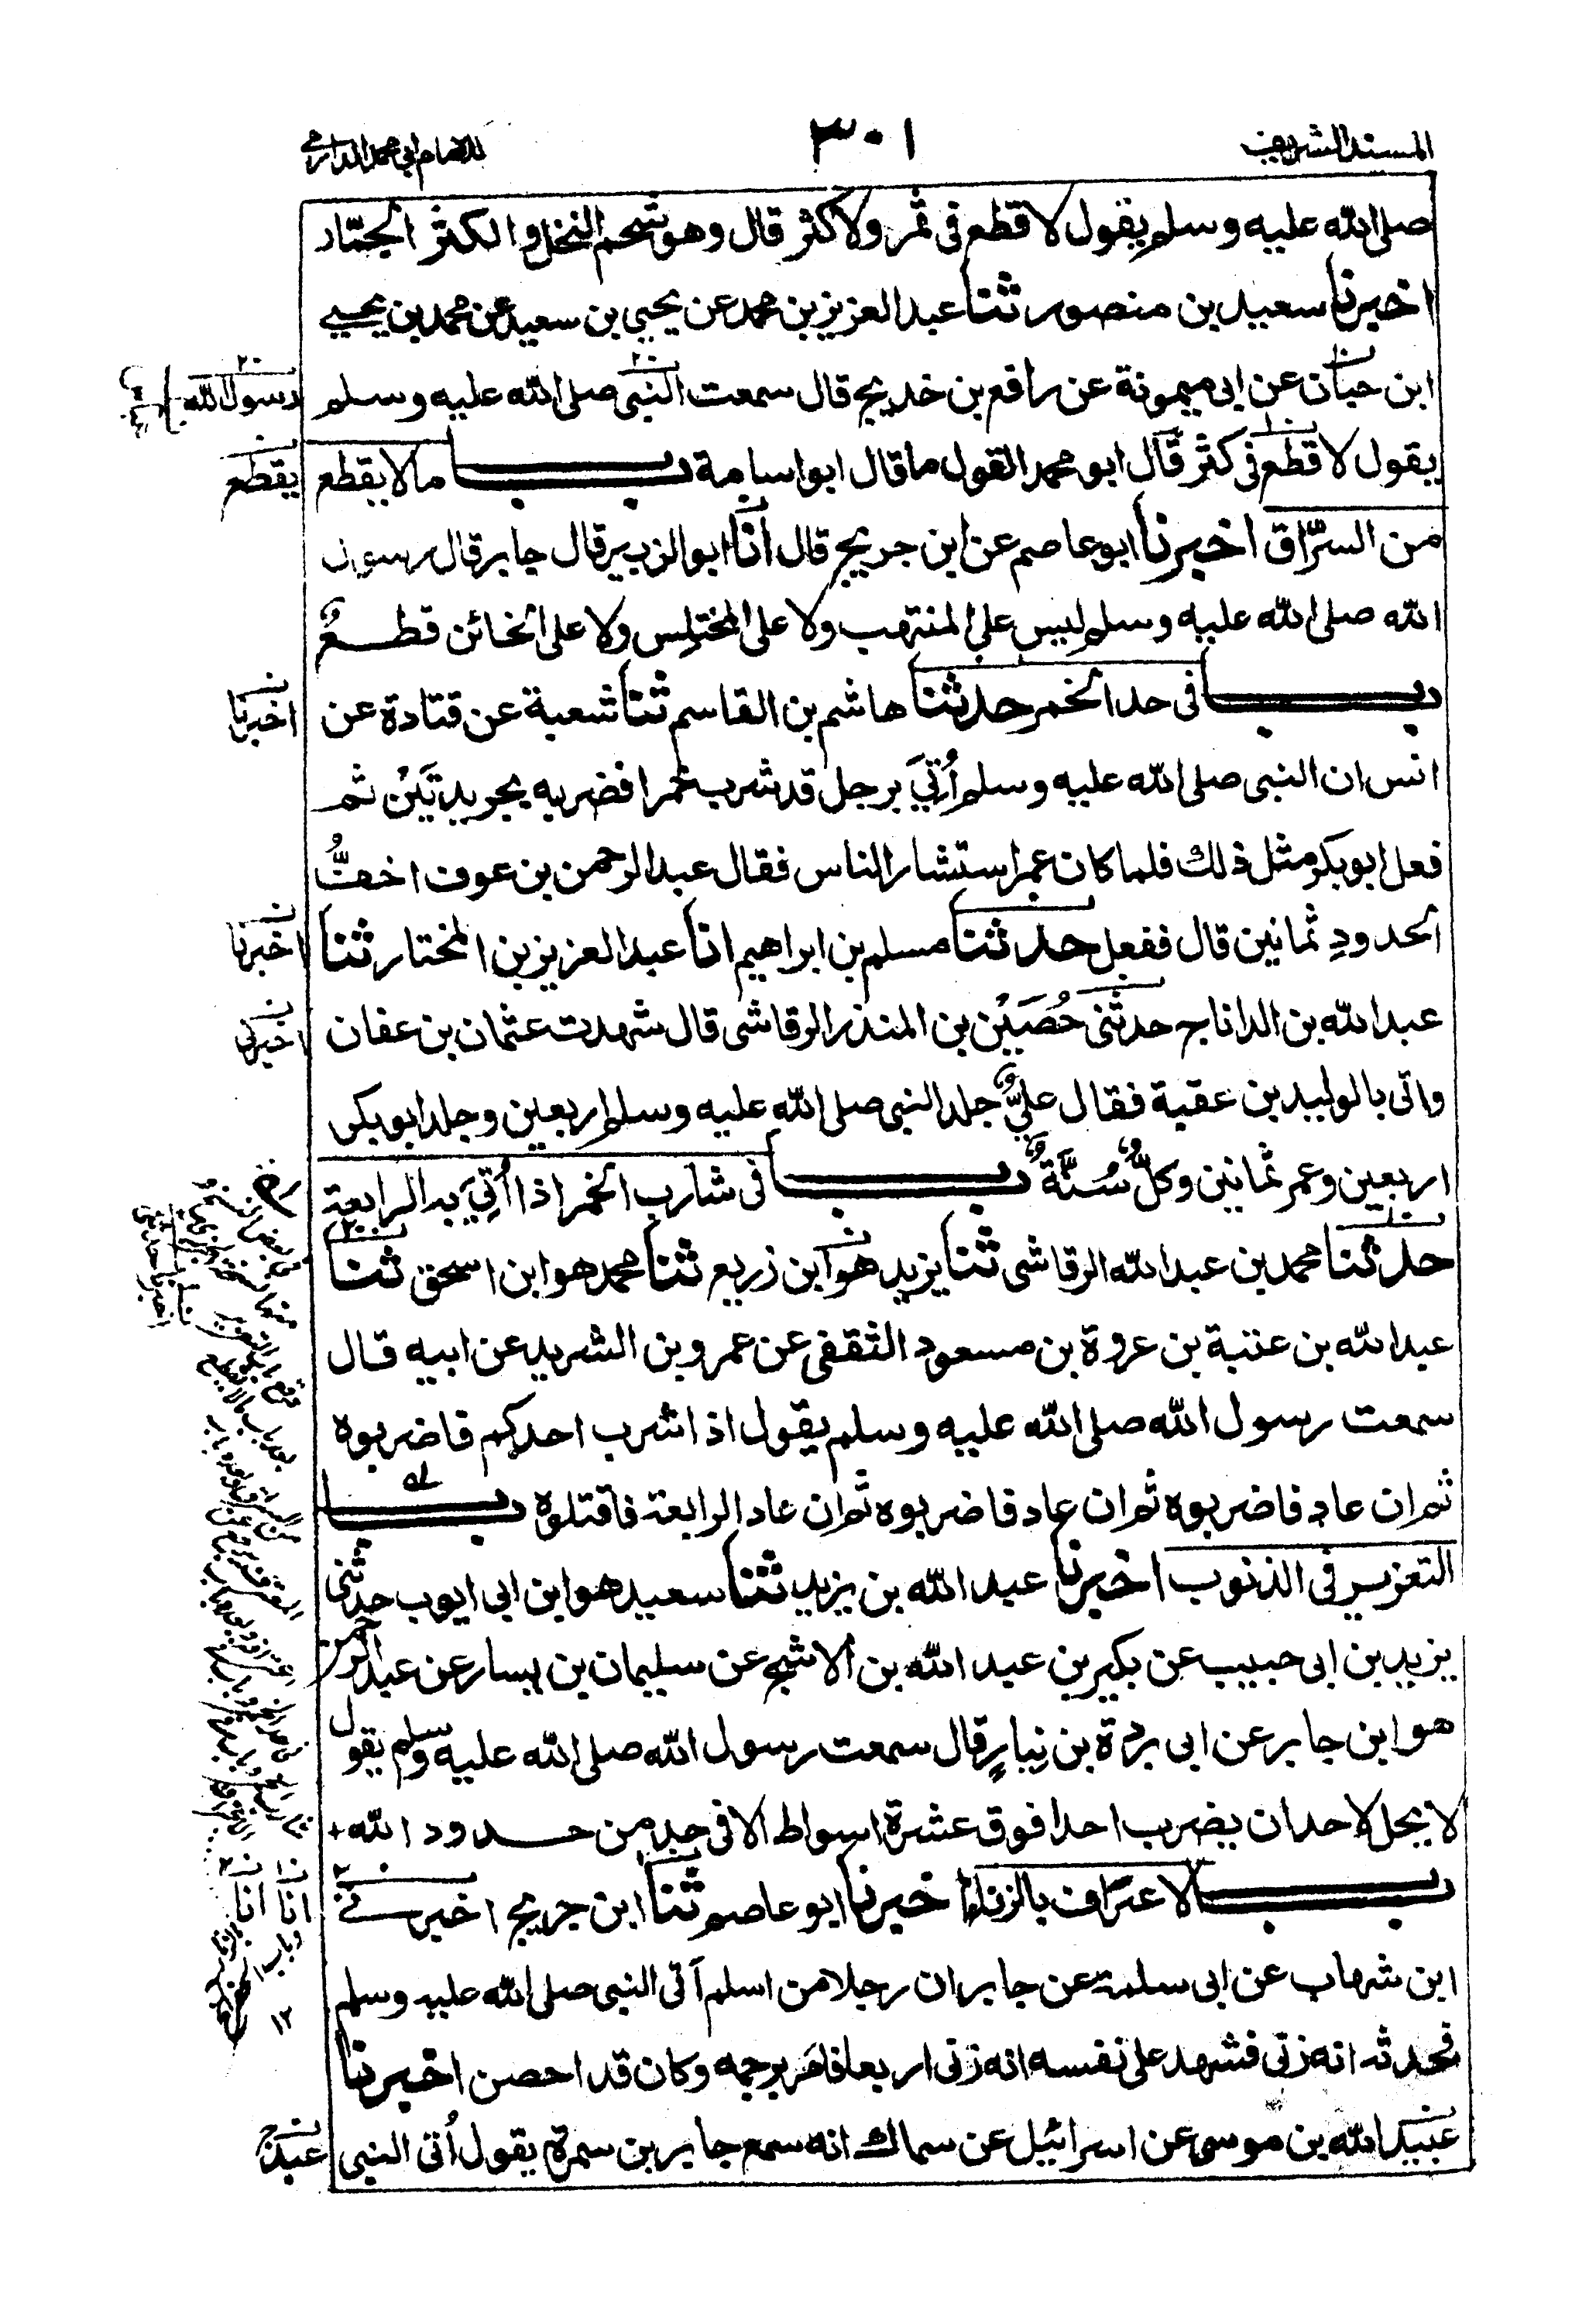 المسند الشريف
٣٠١
للامام ابي محمد الدارمي
صلى الله عليه وسلم يقول لا قطع فى ثمر ولا كثر قال وهو شحم النخل والكثر الجمّار
اخبرنا سعيد بن منصور ثنا عبد العزيز بن محمد عن يحيى بن سعيد عن محمد بن يحيى
ابن حبان عن ابى ميمونة عن رافع بن خديج قال سمعت النبى صلى الله عليه وسلم
رسول الله
يقول لا قطع فى كثر قال ابو محمد القول ما قال ابو اسامة باب ما لا يقطع
يقطع
من السرّاق اخبرنا ابو عاصم عن ابن جريج قال انا ابو الزبير قال جابر قال رسول
الله صلى الله عليه وسلم ليس على المنتهب ولا على المختلِس ولا على الخائن قطعٌ
باب فى حد الخمر حدثنا هاشم بن القاسم ثنا شعبة عن قتادة عن
اخبرنا
انس ان النبى صلى الله عليه وسلم اُتِيَ برجل قد شرب خمرا فضربه بجريدتَيْن ثم
فعل ابو بكر مثل ذلك فلما كان عمر استشار الناس فقال عبد الرحمن بن عوف اخفُّ
الحدودِ ثمانين قال ففعل حدثنا مسلم بن ابراهيم انا عبد العزيز بن المختار ثنا
اخبرنا
عبد الله بن الداناج حدثنى حُضَيْن بن المنذر الرقاشى قال شهدت عثمان بن عفان
اخبرنى
واتى بالوليد بن عقبة فقال عليٌّ جلد النبى صلى الله عليه وسلم اربعين وجلد ابو بكر
اربعين وعمر ثمانين وكلٌّ سُنَّةٌ باب فى شارب الخمر اذا اُتِيَ به الرابعة
حدثنا محمد بن عبد الله الرقاشى ثنا يزيد هو ابن زريع ثنا محمد هو ابن اسحق ثنا
عبد الله بن عتبة بن عروة بن مسعود الثقفى عن عمرو بن الشريد عن ابيه قال
سمعت رسول الله صلى الله عليه وسلم يقول اذا شرب احدكم فاضربوه
ثم ان عاد فاضربوه ثم ان عاد فاضربوه ثم ان عاد الرابعة فاقتلوه باب
التعزير فى الذنوب اخبرنا عبد الله بن يزيد ثنا سعيد هو ابن ابى ايوب حدثنى
يزيد بن ابى حبيب عن بكير بن عبد الله بن الاشج عن سليمان بن يسار عن عبد الرحمن
هو ابن جابر عن ابى بردة بن نِيارٍ قال سمعت رسول الله صلى الله عليه وسلم يقول
لا يحل لاحد ان يضرب احدا فوق عشرة اسواط الا فى حد من حدود الله
باب الاعتراف بالزنا اخبرنا ابو عاصم ثنا ابن جريج اخبرنى
انا انا
ابن شهاب عن ابى سلمة عن جابر ان رجلا من اسلم اَتى النبى صلى الله عليه وسلم
١٢
فحدثه انه زنى فشهد على نفسه انه زنى اربعا فامر برجمه وكان قد احصن اخبرنا
عبيد الله بن موسى عن اسرائيل عن سماك انه سمع جابر بن سمرة يقول اُتى النبى
عبد